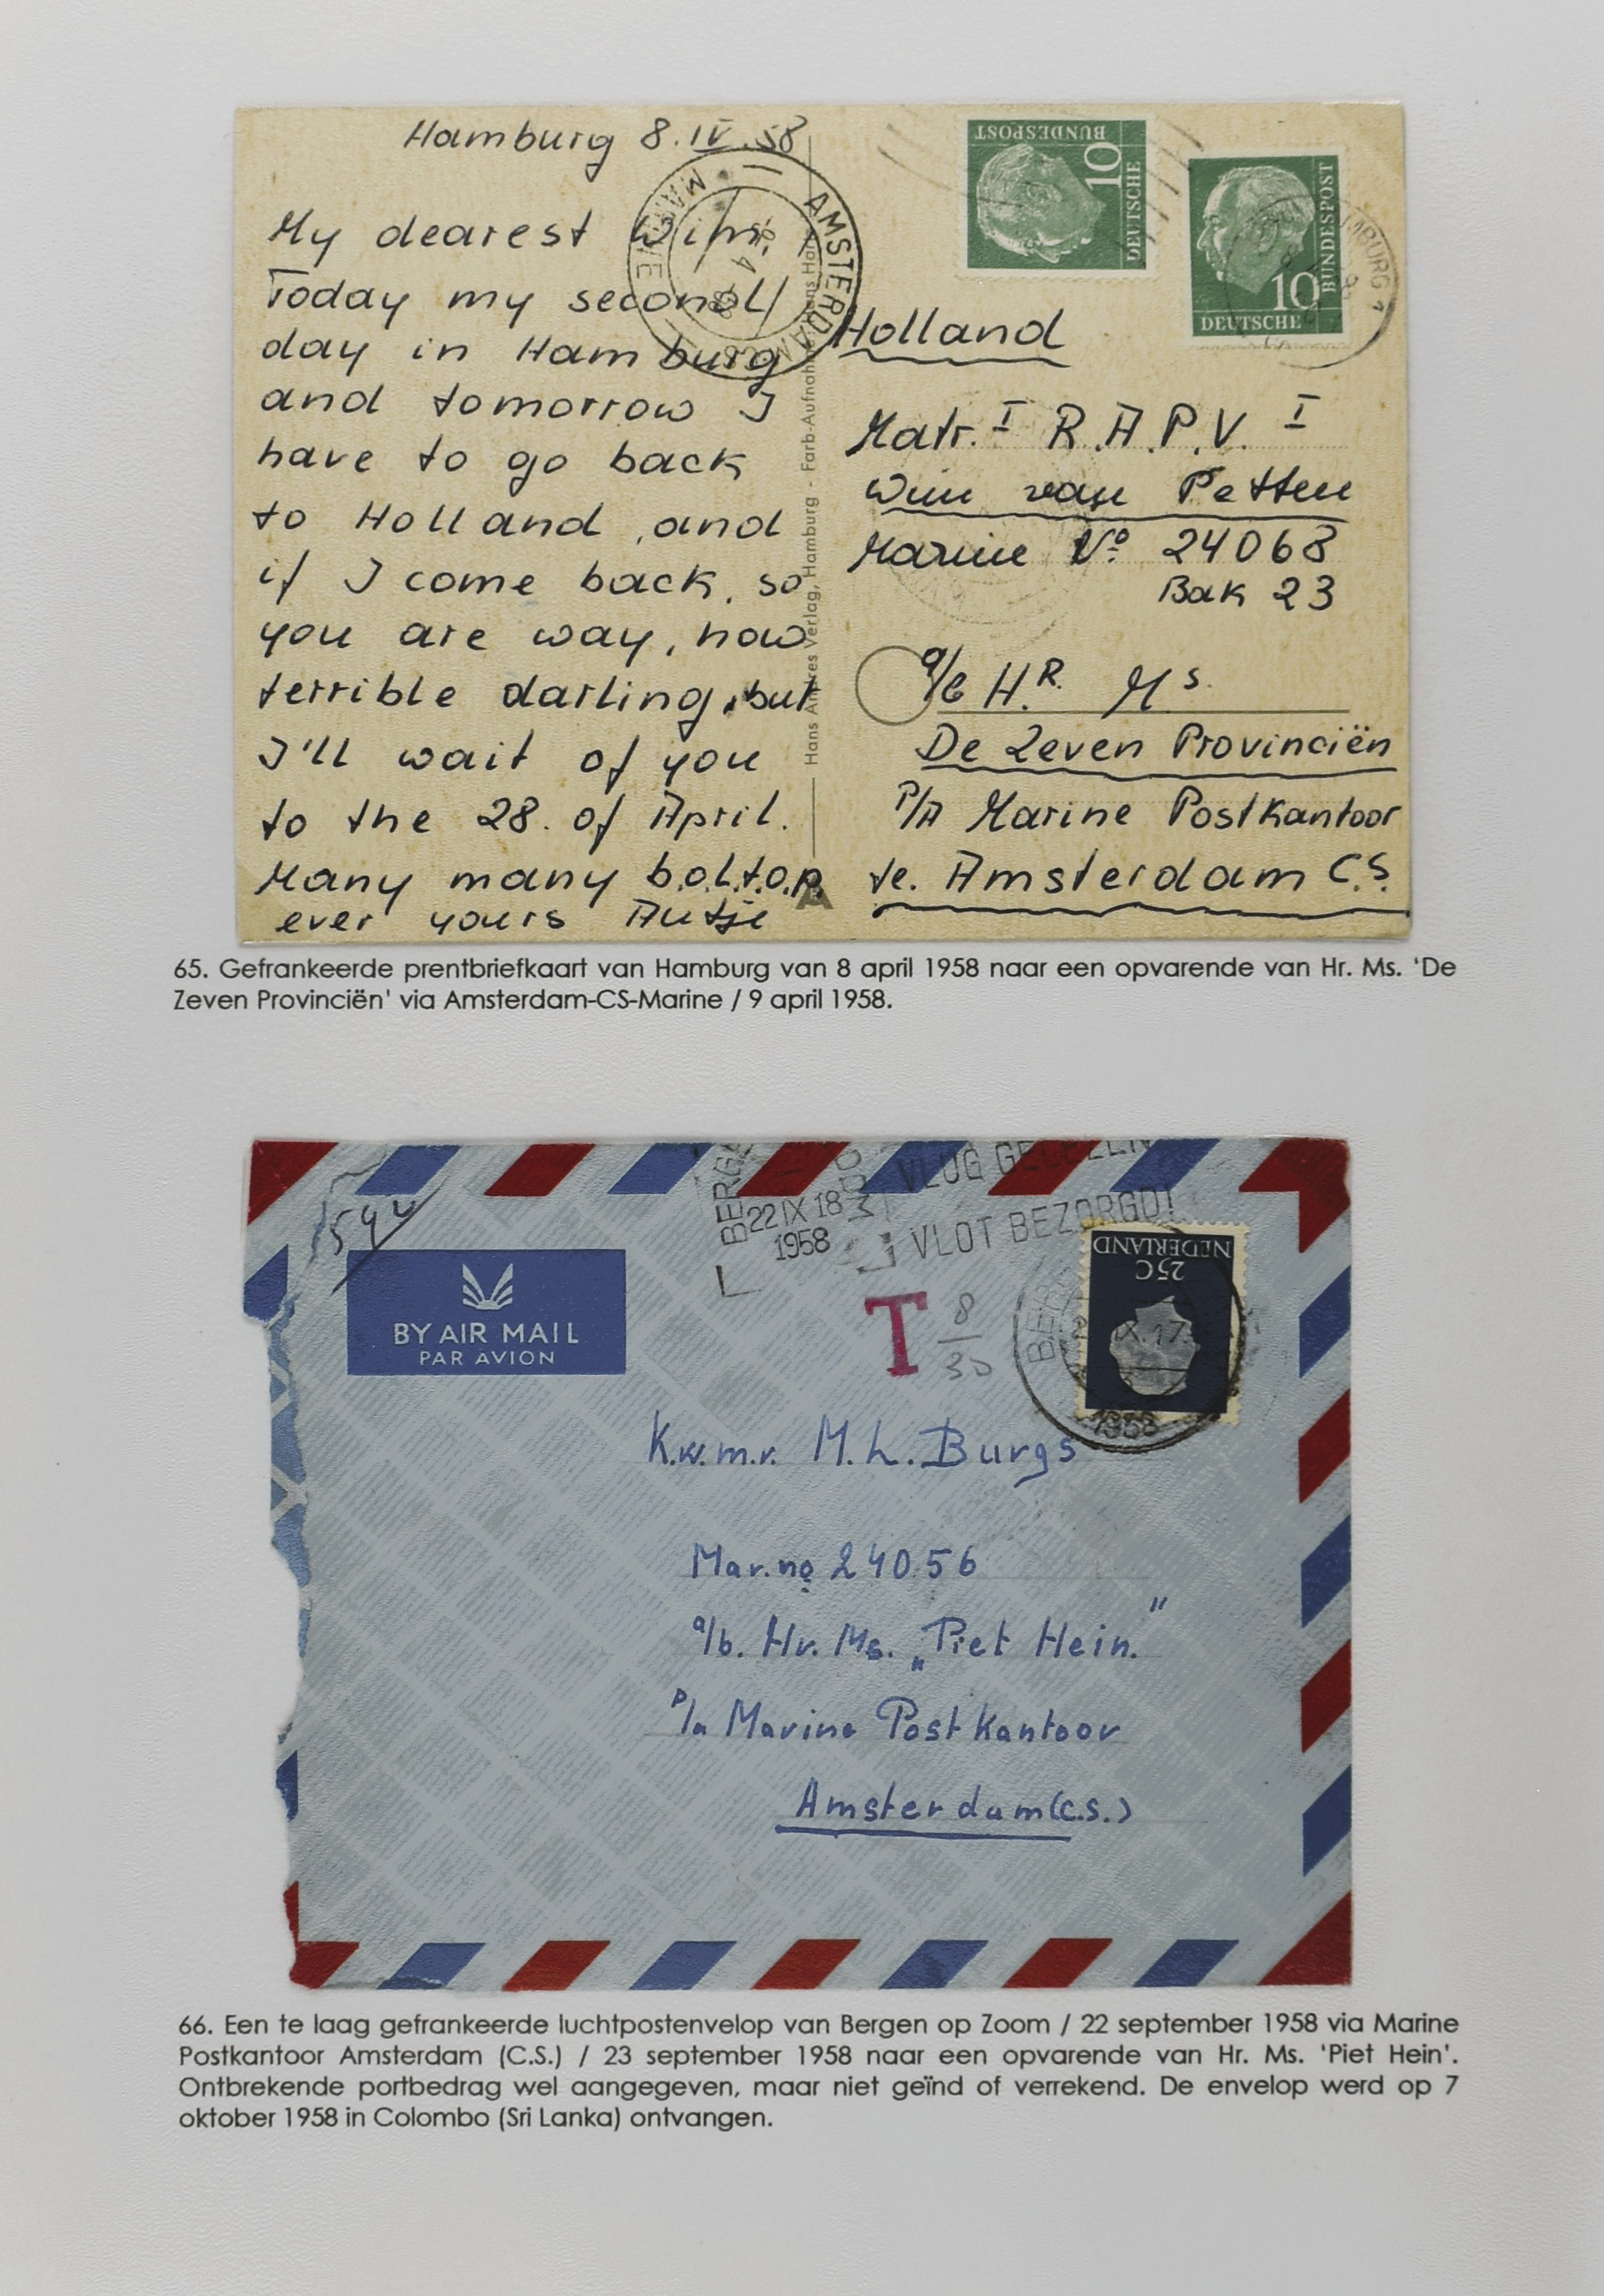 Hamburg 8.IV.58
My dearest Wim.
Today my second
day in Hamburg
and tomorrow I
have to go back
to Holland, and
if I come back, so
you are way, how
terrible darling, but
I'll wait of you
to the 28. of April.
Many many b.o.l.t.o.p.
ever yours Antje
AMSTERDAM C.S.
MARINE
9 4 58
Hans Andres Verlag, Hamburg - Farb-Aufnahme: Hans Hartz
DEUTSCHE BUNDESPOST
10
DEUTSCHE BUNDESPOST
10
HAMBURG 1
Holland
Matr. I R.A.P.V. I
Wim van Petten
Marine No 24068
Bak 23
a/b Hr. Ms.
De Zeven Provinciën
P/A Marine Postkantoor
te. Amsterdam C.S.
65. Gefrankeerde prentbriefkaart van Hamburg van 8 april 1958 naar een opvarende van Hr. Ms. 'De
Zeven Provinciën' via Amsterdam-CS-Marine / 9 april 1958.
BERGE
22 IX 18
1958
VLUG
VLOT BEZORGD!
BY AIR MAIL
PAR AVION
T 8/30
NEDERLAND
25C
BERG
IX.17
1958
K.w.m.r. M.L. Burgs
Mar.no 24056
a/b. Hr. Ms. „Piet Hein."
p/a Marine Postkantoor
Amsterdam (C.S.)
66. Een te laag gefrankeerde luchtpostenvelop van Bergen op Zoom / 22 september 1958 via Marine
Postkantoor Amsterdam (C.S.) / 23 september 1958 naar een opvarende van Hr. Ms. 'Piet Hein'.
Ontbrekende portbedrag wel aangegeven, maar niet geïnd of verrekend. De envelop werd op 7
oktober 1958 in Colombo (Sri Lanka) ontvangen.